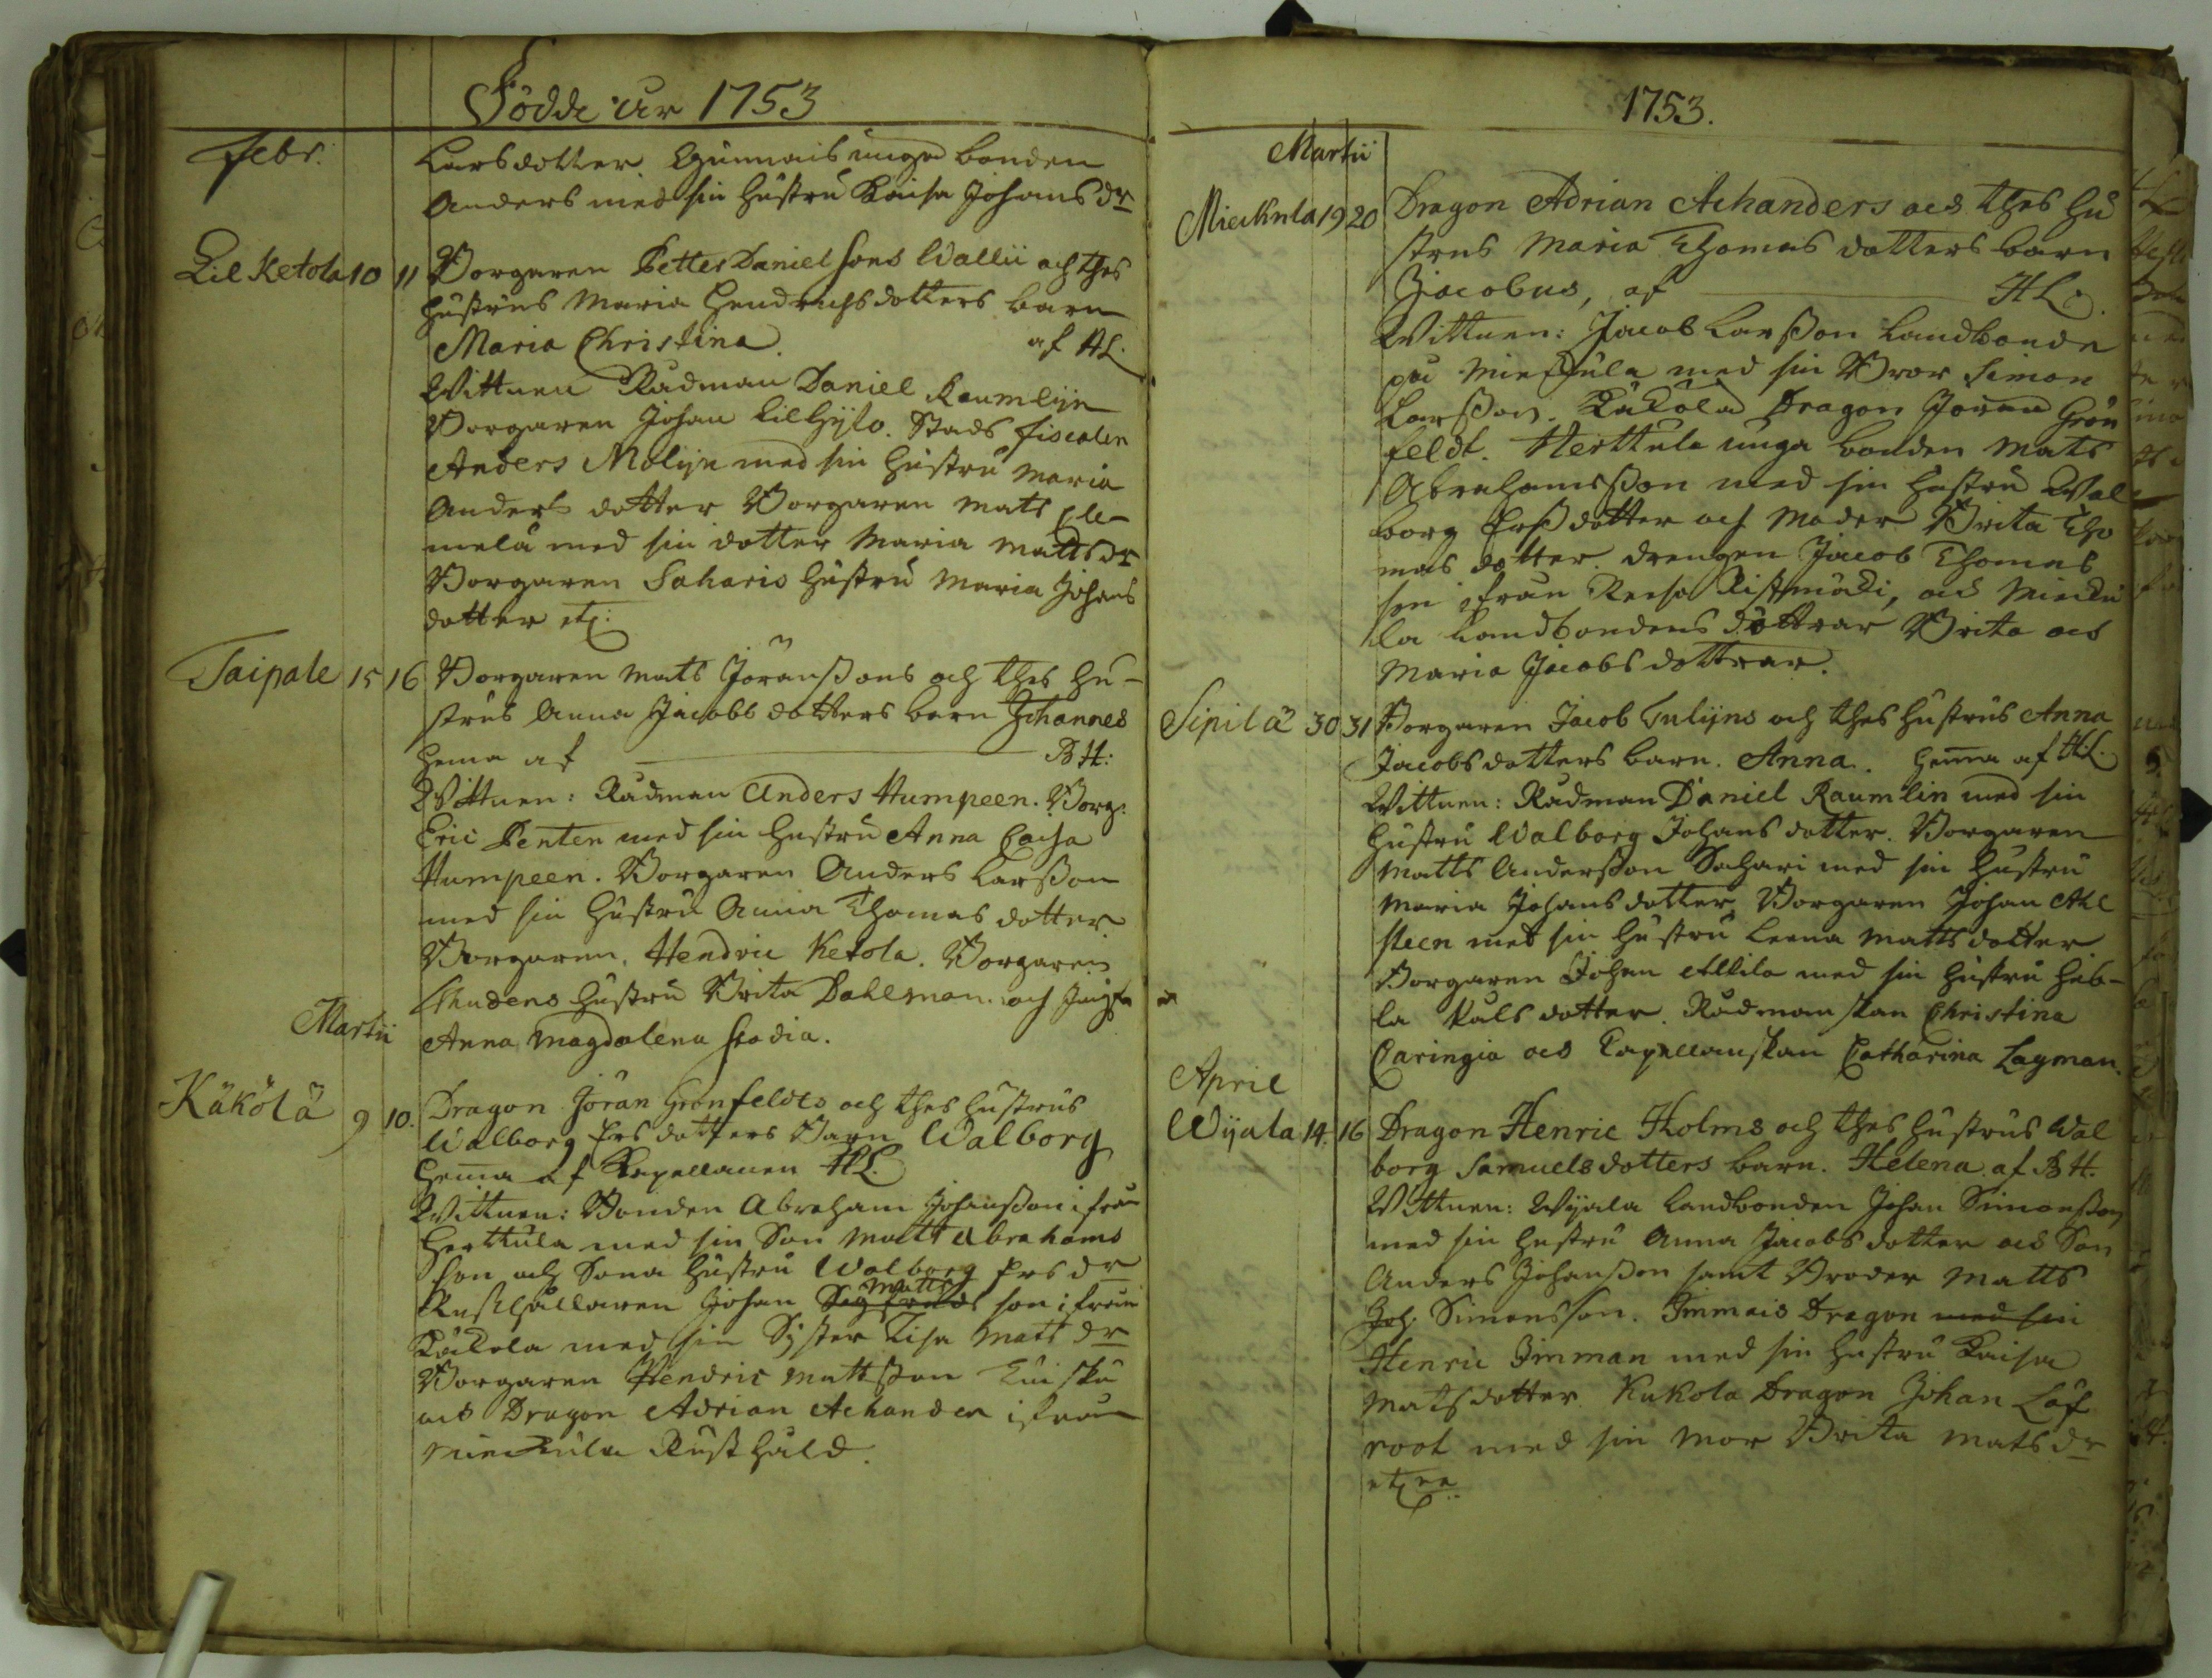 Födde åhr 1753
Febr.
Larsdotter. Gunnais unga bonden
Anders med sin hustru Kaisa Johansdr
Lil Ketola 10 11 Borgaren Petter Danielsons Wallii och thes
hustrus Maria Hendrichsdotters barn
Maria Christina. af HL.
Wittnen Rådman Daniel Raumlijn
Borgaren Johan Lilhyto. Stads fiscalen
Anders Molijn med sin hustru Maria
Anders dotter Borgaren Mats
mela med sin dotter Maria Mattsdr
Borgaren Saharis hustru Maria Johans
dotter etc:
Taipale 15 16 Borgaren Mats Jöranssons och thes hu-
strus Anna Jacobs dotters barn Johannes
hema af BH:
Wittnen: Rådman Anders Humpeen. Borg:
Eric Penten med sin hustru Anna Caisa
Humpeen. Borgaren Anders Larsson
med sin hustru Anna Thomas dotter
Borgaren. Hendric Ketola. Borgaren
hustru Brita Dahlman. och Jungfr
Martii
Anna Magdalena
Käkölä 9 10. Dragon Jöran Grönfeldts och thes hustrus
Walborg Ersdotters Barn Walborg
hema af Kapellanen HL.
Wittnen: Bonden Abraham Johansson ifrån
Herttula med sin Son Matts Abrahams
son och Sona hustru Walborg Ersdr
Rusthållaren Johan Sigfreds Matts son ifrån
Käkola med sin Syster Lisa Mattsdr
Borgaren Hendric Mattsson Tuisku
och Dragon Adrian Achander ifrån
Mieckula Rusthåld.
1753.
Martii
Mieckula 19 20 Dragon Adrian Achanders och thes hu
strus Maria Thomas dotters barn
Jacobus, af HL.
Wittnen: Jacob Larsson Landbonde
på Mieckula med sin Bror Simon
Larsson. Käkola Dragon Jöran Grön
feldt. Herttula unga bonden Mats
Abrahamsson med sin hustru Wal
borg Ersdotter och Moder Brita Tho
mas dotter. drengen Jacob Thomas
son ifrån Reeso Ristimäki, och Miecku
la Landbondens döttrar Brita och
Maria Jacobs dottrar.
Sipilä 30 31 Borgaren Jacob Tulijns och thes hustrus Anna
Jacobsdotters barn. Anna. hema af HL.
Wittnen: Rådman Daniel Raumlin med sin
hustru Walborg Johans dotter. Borgaren
Matts Andersson Sahari med sin hustru
Maria Johansdotter Borgaren Johan Ahl
steen met sin hustru Leena Mattsdotter
Borgaren Johan Allila med sin hustru Heb-
la Påls dotter. Rådmanskan Christina
Caringia och Capellanskan Catharina Layman.
April
Wijala 14. 16 Dragon Henric Holms och thes hustrus Wal
borg Samuelsdotters barn. Helena af BH.
Wittnen: Wijala Landbonden Johan Simonsson
med sin hustru Anna Jacobs dotter och Son
Anders Johansson samt Broder Matts
Joh. Simonsson. Immais Dragon med sin
Henric Imman med sin hustru Kaisa
Matsdotter. Kukola Dragon Johan Löf
root med sin Mor Brita Matsdr